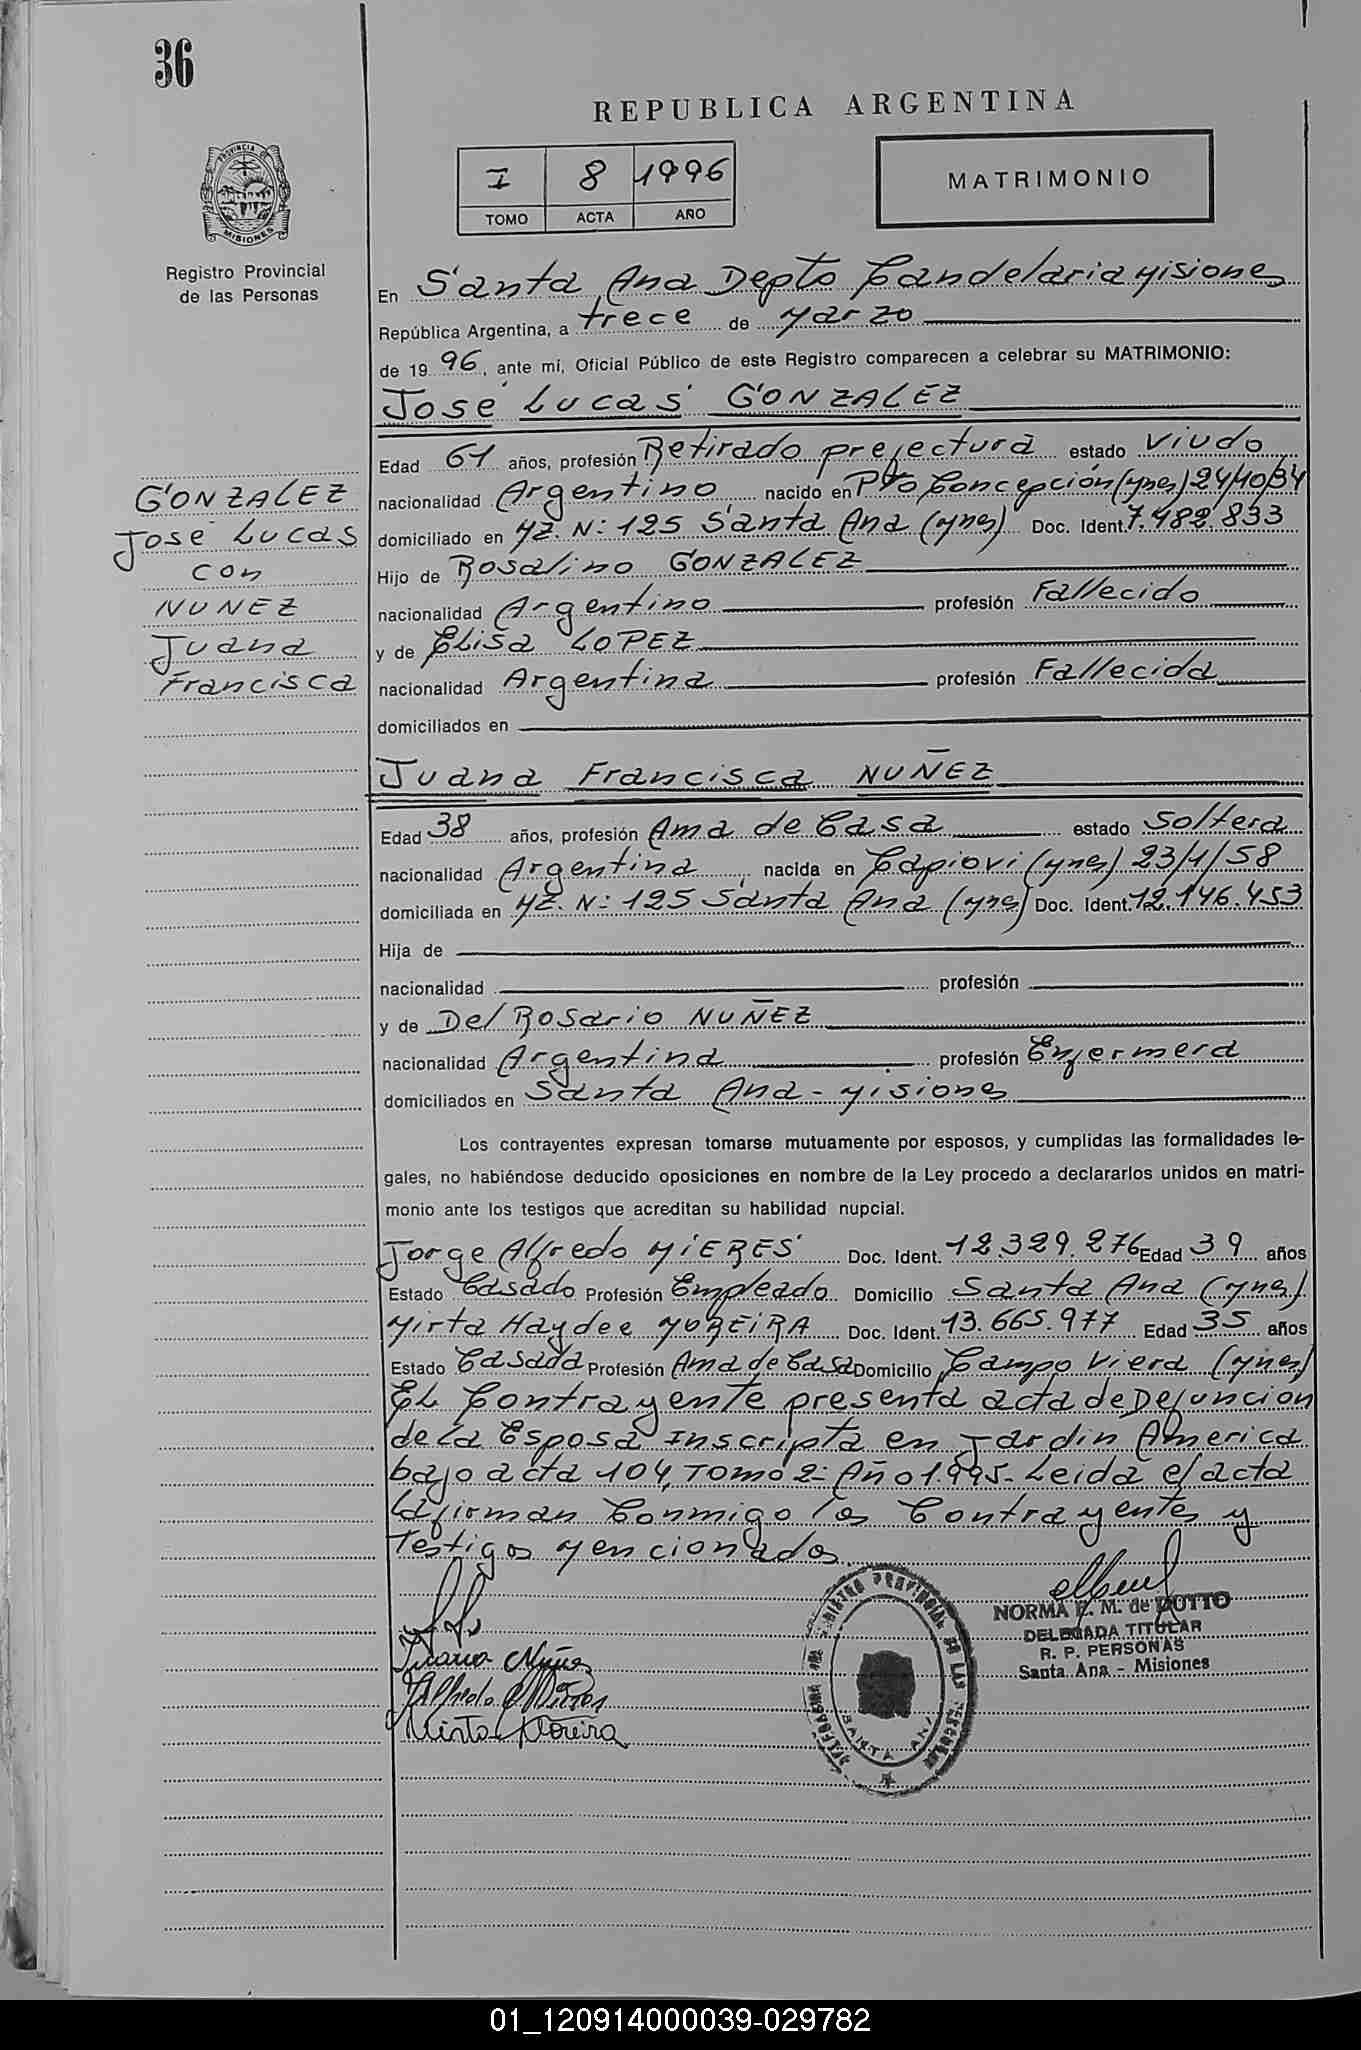 36
REPUBLICA ARGENTINA
I 8 1996
TOMO ACTA AÑO
MATRIMONIO
PROVINCIA DE
MISIONES
Registro Provincial
de las Personas
En Santa Ana Depto Candelaria Misiones
República Argentina, a trece de Marzo
de 1996, ante mí, Oficial Público de este Registro comparecen a celebrar su MATRIMONIO:
José Lucas GONZALEZ
Edad 61 años, profesión Retirado prefectura estado Viudo
nacionalidad Argentino nacido en Pto Concepción (Mnes) 24/10/34
domiciliado en MZ. N: 125 Santa Ana (Mnes) Doc. Ident. 7.482.833
Hijo de Rosalino GONZALEZ
nacionalidad Argentino profesión Fallecido
y de Elisa LOPEZ
nacionalidad Argentina profesión Fallecida
domiciliados en
GONZALEZ
José Lucas
con
NUÑEZ
Juana
Francisca
Juana Francisca NUÑEZ
Edad 38 años, profesión Ama de Casa estado Soltera
nacionalidad Argentina nacida en Capiovi (Mnes) 23/1/58
domiciliada en MZ. N: 125 Santa Ana (Mnes) Doc. Ident. 12.146.453
Hija de
nacionalidad profesión
y de Del Rosario NUÑEZ
nacionalidad Argentina profesión Enfermera
domiciliados en Santa Ana - Misiones
Los contrayentes expresan tomarse mutuamente por esposos, y cumplidas las formalidades le-
gales, no habiéndose deducido oposiciones en nombre de la Ley procedo a declararlos unidos en matri-
monio ante los testigos que acreditan su habilidad nupcial.
Jorge Alfredo MIERES Doc. Ident. 12.329.276 Edad 39 años
Estado Casado Profesión Empleado Domicilio Santa Ana (Mnes)
Mirta Haydee MOREIRA Doc. Ident. 13.665.977 Edad 35 años
Estado Casada Profesión Ama de Casa Domicilio Campo Viera (Mnes)
EL Contrayente presenta acta de Defuncion
de la Esposa Inscripta en Jardin America
bajo acta 104, Tomo 2: Año 1.995- Leida el acta
la firman Conmigo los Contrayentes y
Testigos Mencionados.
Juana Núñez
Alfredo Mieres
Mirta Moreira
REGISTRO PROVINCIAL DE LAS PERSONAS
SANTA ANA
NORMA E. M. de DUTTO
DELEGADA TITULAR
R. P. PERSONAS
Santa Ana - Misiones
01_120914000039-029782